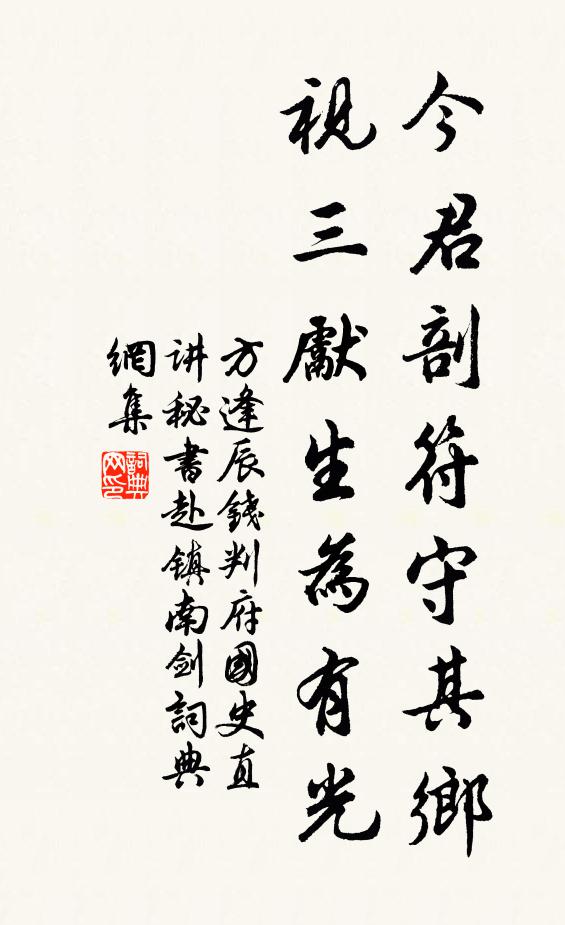 今君剖符守其鄉
視三獻生為有光
方逢辰錢判府國史直
讲秘書赴镇南劍詞典
網集
詞典網印